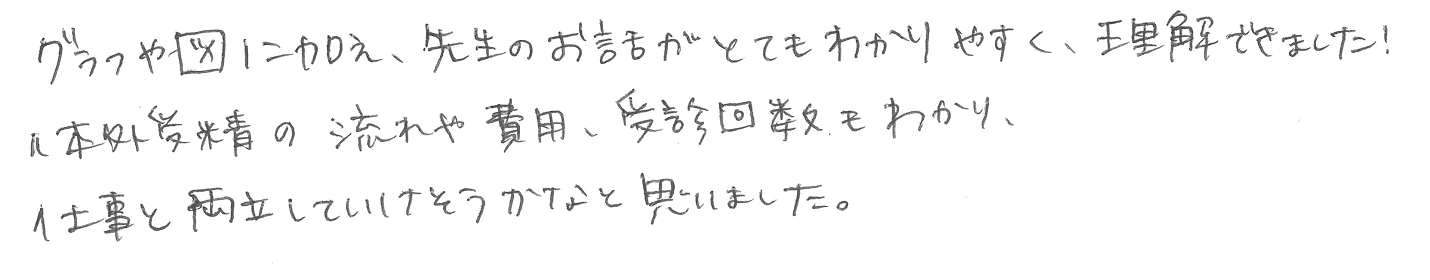 グラフや図に加え、先生のお話がとてもわかりやすく、理解できました!
体外受精の流れや費用、受診回数もわかり、
仕事と両立していけそうかなと思いました。